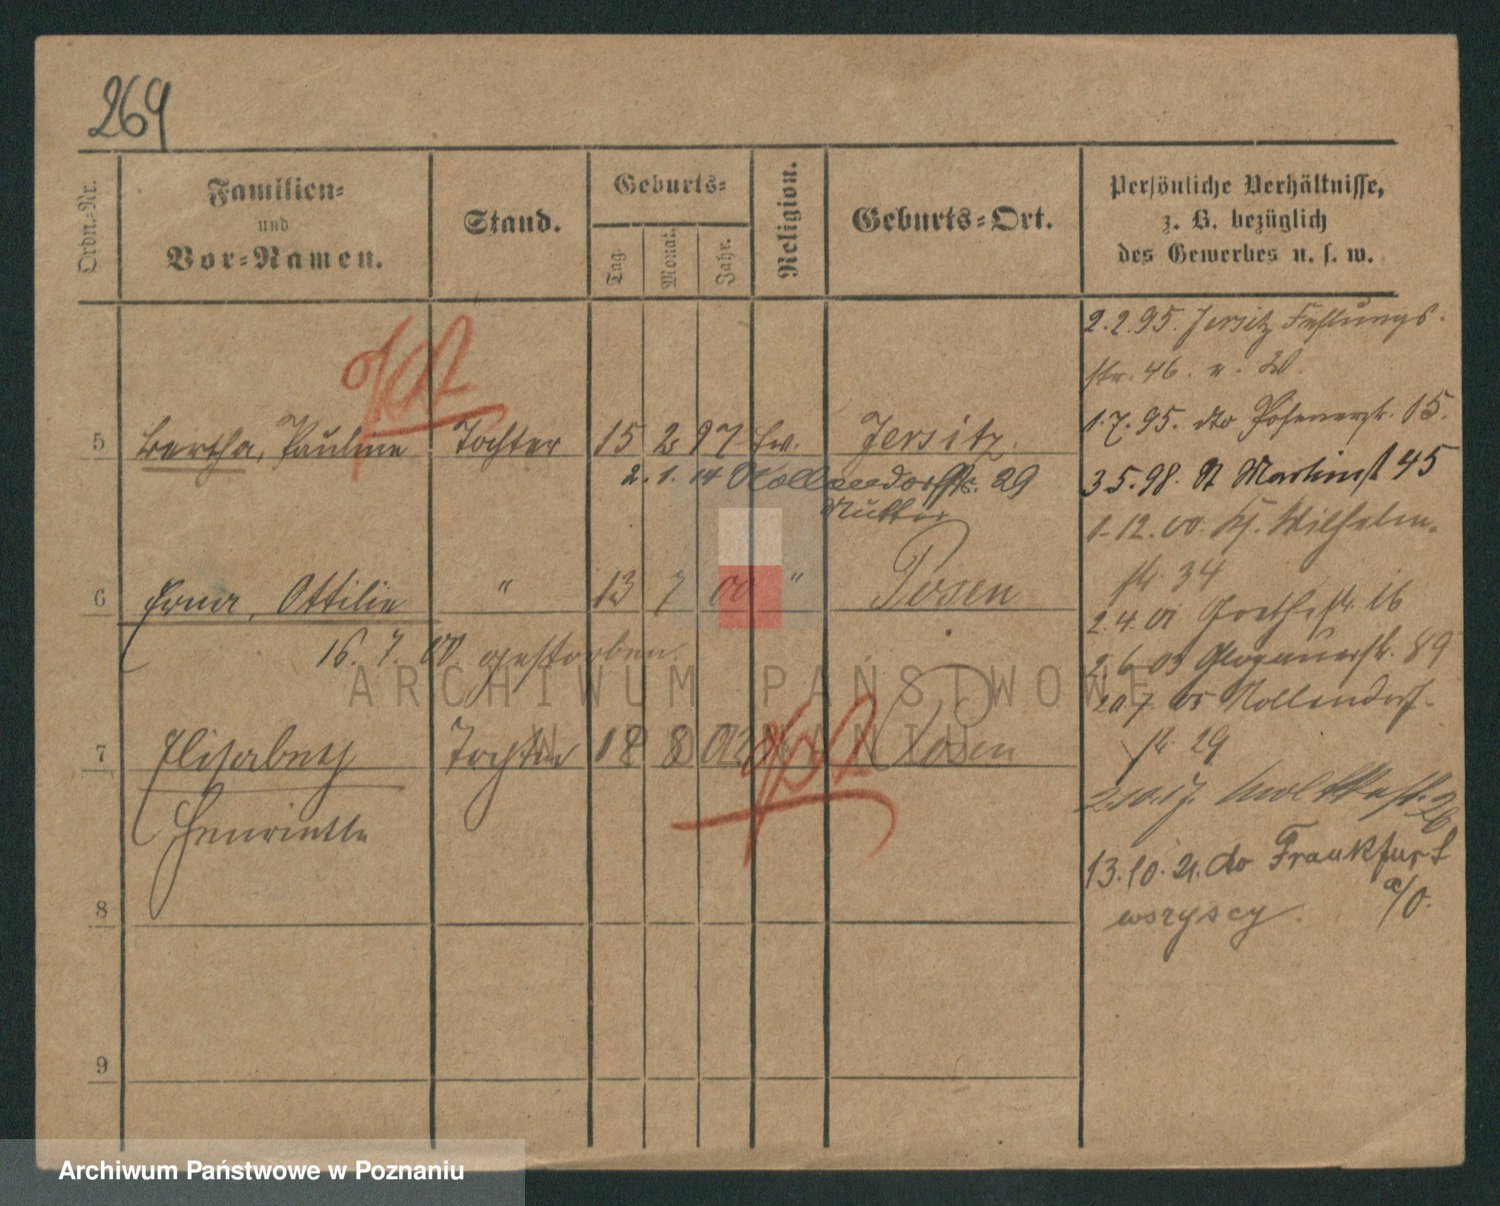 269
Ordn.-Nr.
Familien-
und
Vor-Namen.
Stand.
Geburts-
Tag.
Monat.
Jahr.
Religion.
Geburts-Ort.
Persönliche Verhältnisse,
z. B. bezüglich
des Gewerbes u. s. w.
5 Bertha, Pauline Tochter 15 2 97 Ev. Jersitz.
2. 1. 14 Nollendorfstr. 29
Mutter
6 Erna, Ottilie " 13 7 00 " Posen
16. 7. 00 gestorben.
7 Elisabeth Tochter 18 8 02 Posen
Henriette
8
9
2. 2. 95. Jersitz
str. 46.
1. 7. 95. dto Posenerstr. 15.
3 5. 98. St Martinst 45
1. 12. 00. Wilhelm-
str. 34
2. 4. 01 Goethestr. 16
2. 6 03 Glogauerstr. 89
20 7 05 Nollendorf-
str. 29
13. 10. 21. do Frankfurt
a/O.
wszyscy.
ARCHIWUM PAŃSTWOWE
W POZNANIU
Archiwum Państwowe w Poznaniu